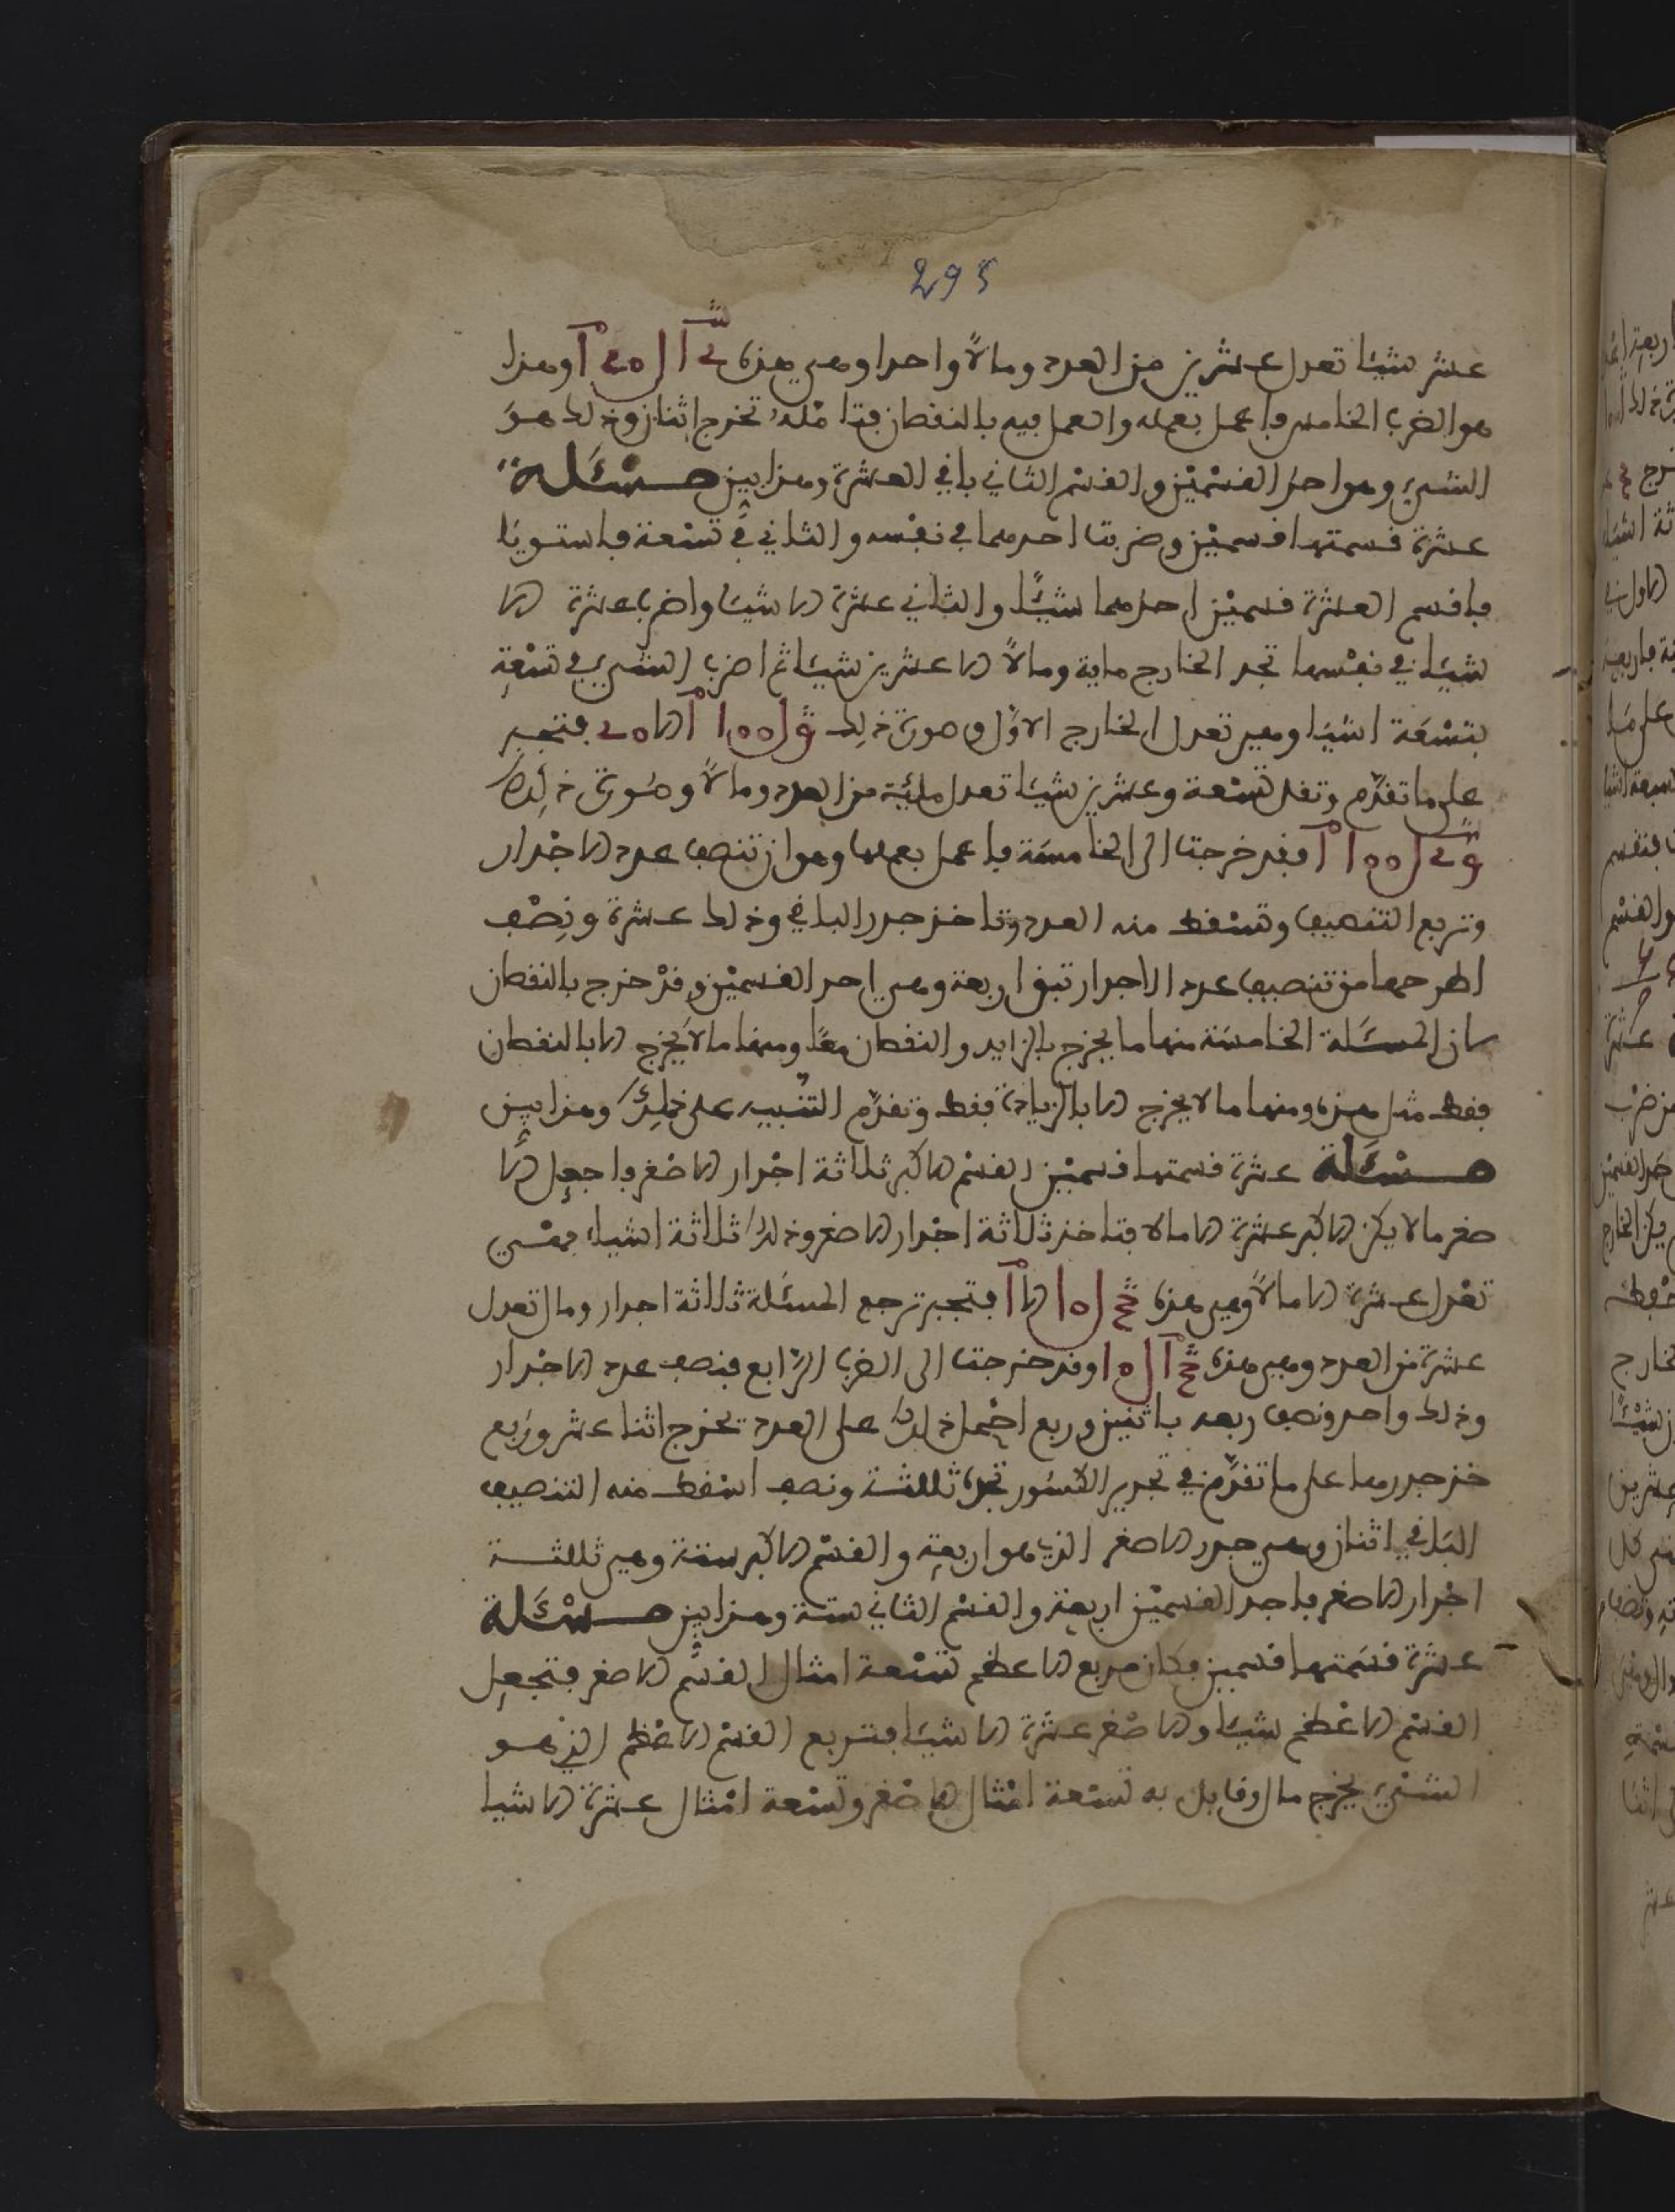 295
عشر شيئا تعدل عشرين من العدد ومالا واحدا وهي هذه وهذا
هو الضرب الخامس فاعمل بعمله والعمل فيه بالنقصان تخرج اثنان وذلك هو
الشيء وهو احد القسمين والقسم الثاني باقي العشرة وهذا بين مسئلة
عشرة قسمتها قسمين وضربت احدهما في نفسه والثاني في تسعة فاستويا
فاقسم العشرة قسمين احدهما شيئا والثاني عشرة الا شيئا واضرب عشرة الا
شيئا في نفسها تجد الخارج ماية ومالا الا عشرين شيئا ثم اضرب الشيء في تسعة
بتسعة اشيا وهي تعدل الخارج الاول وصورة ذلك فتجبر
على ما تقدم وتقل تسعة وعشرين شيئا تعدل مائة من العدد ومالا وصورة ذلك
فقد خرجت الى الخامسة فاعمل بعملها وهو ان تنصف عدد الاجذار
وتربع التنصيف وتسقط منه العدد وتاخذ جدر الباقي وذلك عشرة ونصف
اطرحها من تنصيف عدد الاجدار تبق اربعة وهي احد القسمين وقد خرج بالنقصان
لان المسئلة الخامسة منها ما يخرج بالزايد والنقصان معا ومنها ما لا يخرج الا بالنقصان
فقط مثل هذه ومنها ما لا يخرج الا بالزيادة فقط وتقدم التنبيه على ذلك وهذا بين
مسئلة عشرة قسمتها قسمين القسم الاكبر ثلاثة اجذار الاصغر فاجعل الا
صغر مالا يكن الاكبر عشرة الا مالا فتاخذ ثلاثة اجذار الاصغر وذلك ثلاثة اشياء فهي
تعدل عشرة الا مالا وهي هذه فتجبر ترجع المسئلة ثلاثة اجدار ومال تعدل
عشرة من العدد وهي هذه وقد خرجت الى الضرب الرابع فنصف عدد الاجذار
وذلك واحد ونصف ربعه باثنين وربع احمل ذلك على العدد تخرج اثنا عشر وربع
خذ جدرها على ما تقدم في تجدير الكسور تجده ثلثة ونصف اسقط منه التنصيف
الباقي اثنان وهي جدر الاصغر الذي هو اربعة والقسم الاكبر ستة وهي ثلثة
اجذار الاصغر فاحد القسمين اربعة والقسم الثاني ستة وهذا بين مسئلة
عشرة قسمتها قسمين فكان مربع الاعظم تسعة امثال القسم الاصغر فتجعل
القسم الاعظم شيئا والاصغر عشرة الا شيئا فتربع القسم الاعظم الذي هو
الشيء يخرج مال وقابل به تسعة امثال الاصغر وتسعة امثال عشرة الا شيا